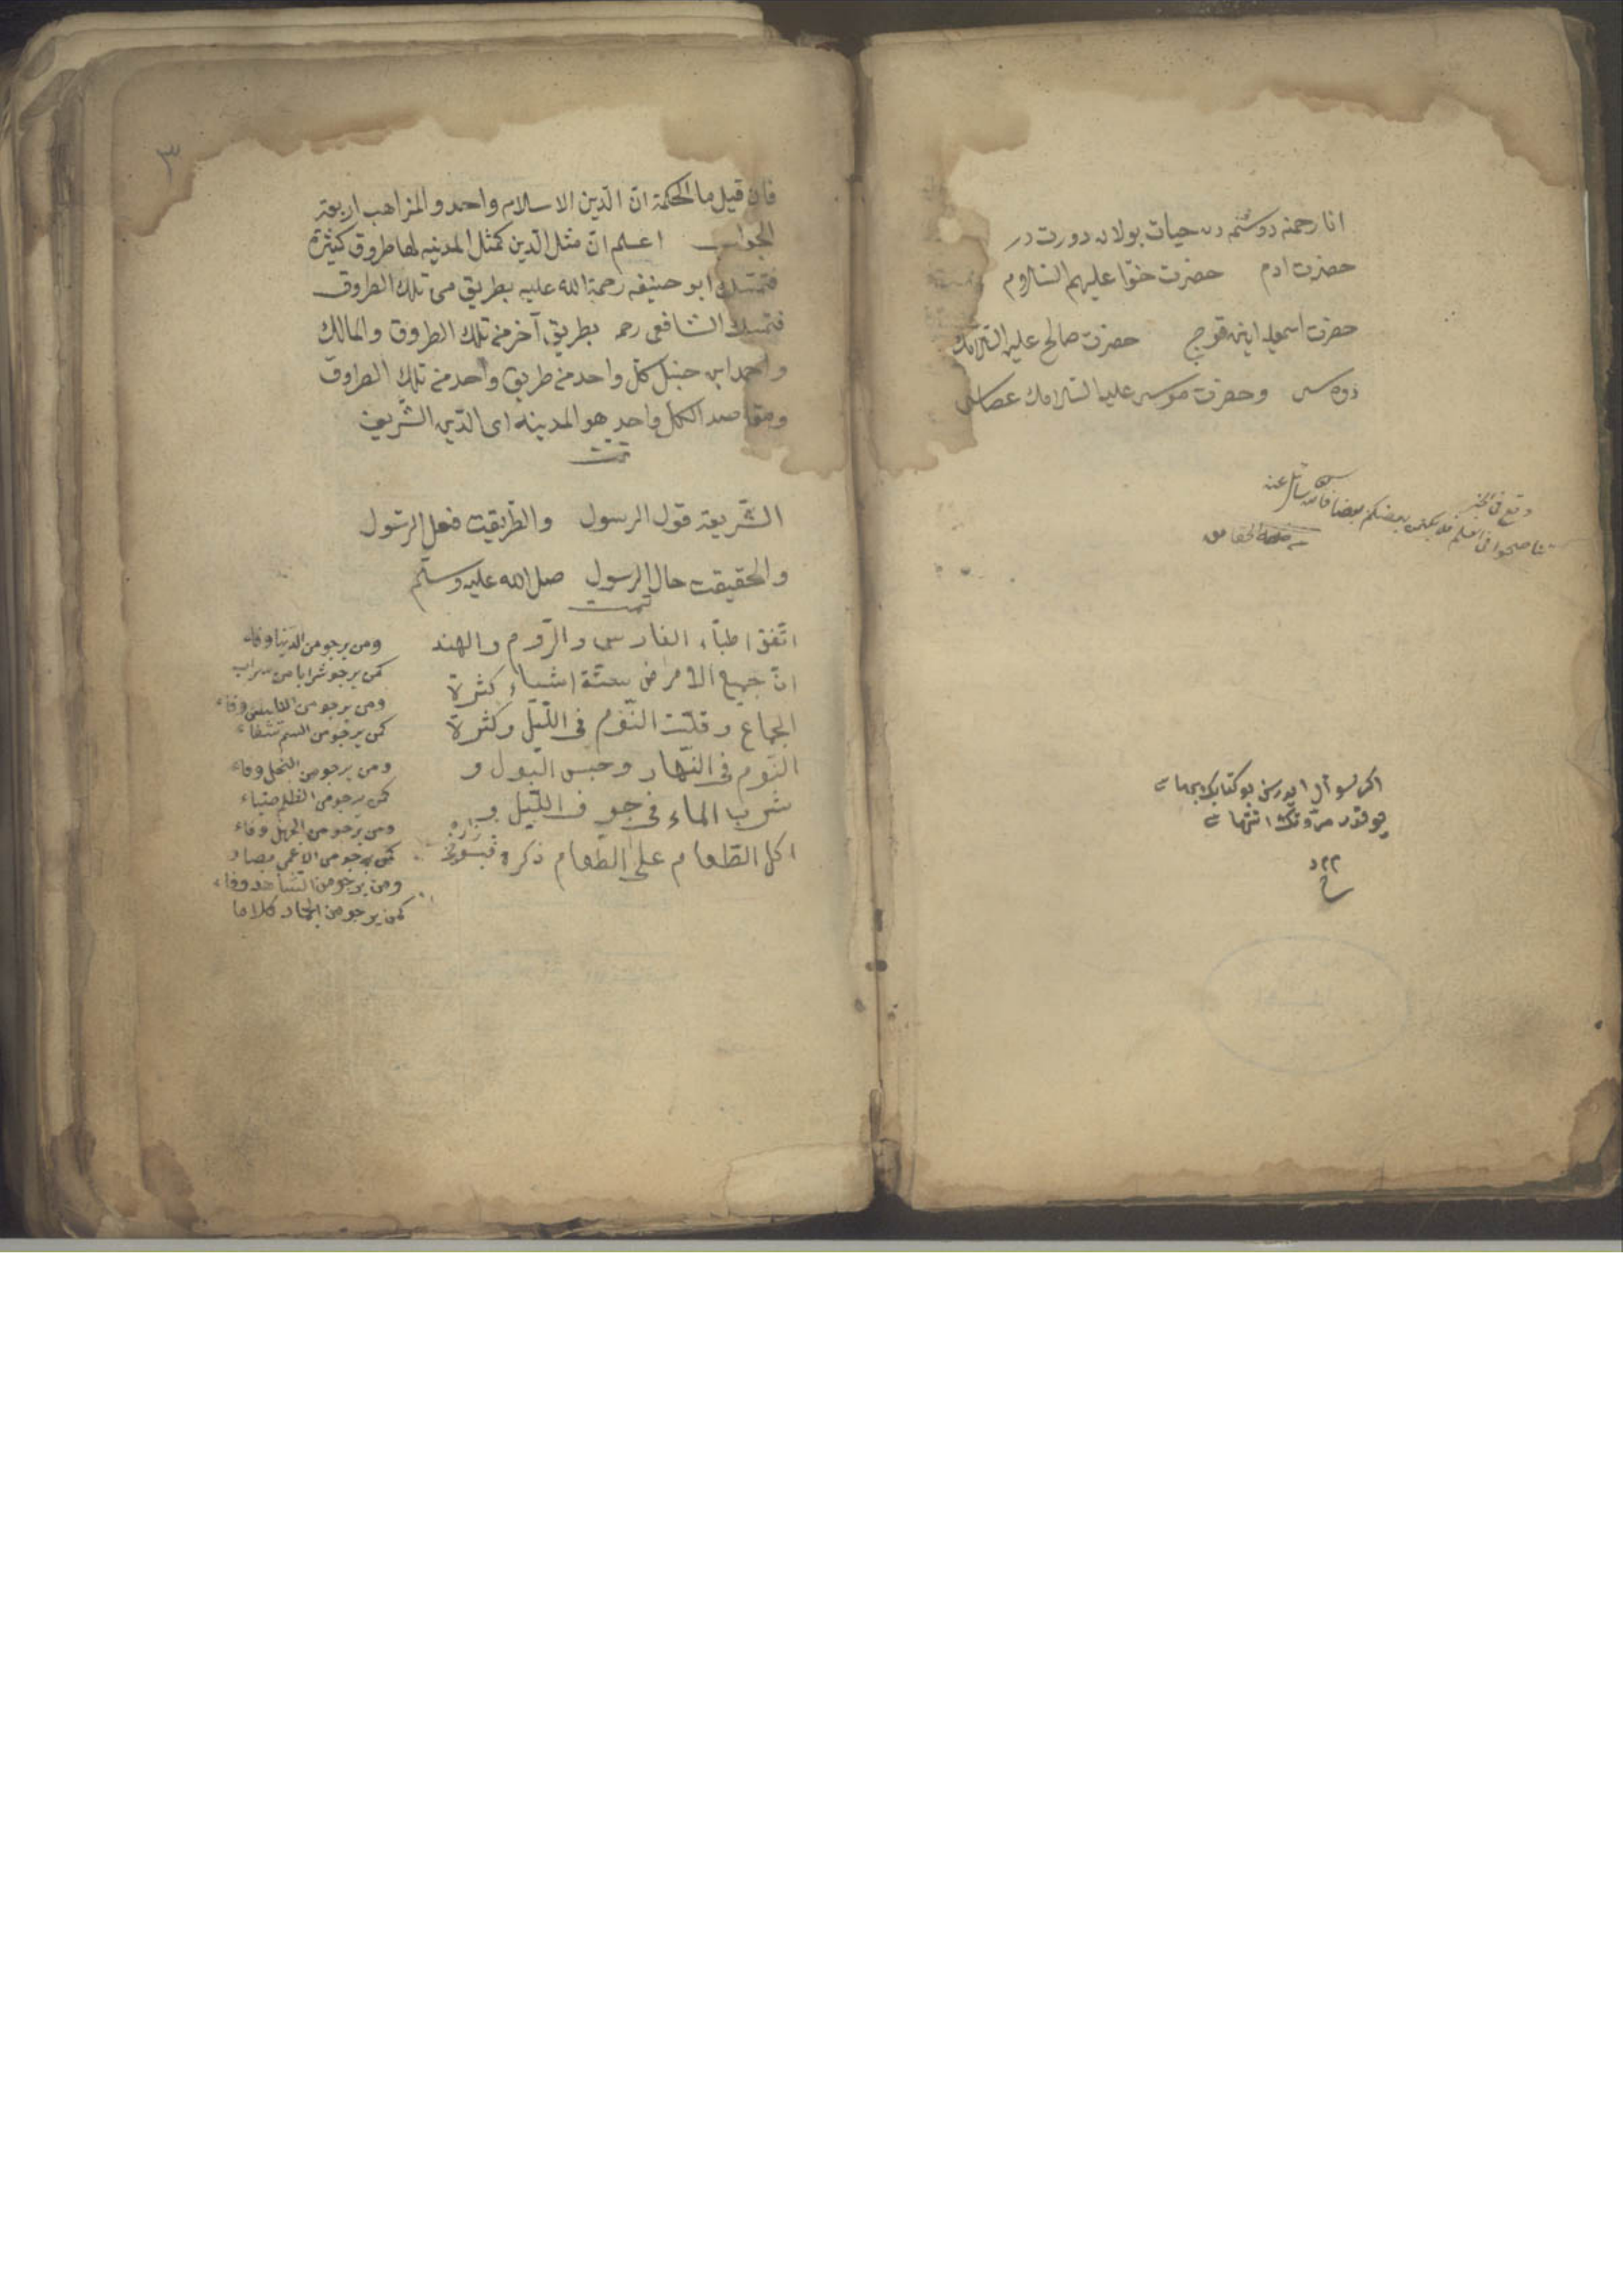 انا رحمنه دوشتمدن حيات بولان دورت در
حضرت ادم حضرت حوّا عليهم السلاوم
حضرت اسمعيله اينن قوج حضرت صالح عليه السلامك
دوه سى وحضرت موسى عليه السلامك عصاسى
وقع فى الخبر
تناصحوا فى العلم فلا يكتمن بعضكم بعضا فان الله سائل عنه
اكر سؤال ايدرسن بو كتابك
يوقدر انتهاسى
٣
فان قيل ما الحكمة انّ الدّين الاسلام واحد و المزاهب اربعة
الجواب اعلم انّ مثل الدّين كمثل المدنيه لها طروق كيثرة
فتمسك ابو حنيفه رحمة الله عليه بطريق من تلك الطروق
فتمسك الشافعى رحمه بطريق آخر من تلك الطروق والمالك
واحمد ابن حنبل كل واحد من طريق واحد من تلك الطروق
ومقاصد الكل واحد هو المدينه اى الدّين الشّريف
تمت
الشّريعة قول الرسول والطّريقت فعل الرسّول
والحقيقت حال الرسول صل الله عليه وسلّم
تمت
اتّفق اطبّاء الفارس والرّوم والهند
انّ جميع الامراض ستّة اشياء كثرة
الجماع وقلّت النّوم فى اللّيل وكثرة
النّوم فى النّهار وحبس البول و
شرب الماء فى جوف اللّيل و
اكل الطّعام على الطّعام ذكره
ومن يرجو من الدّنيا وفاء
كمن يرجو شرابا من سراب
ومن يرجو من وفاء
كمن يرجو من السم شفاء
ومن يرجو من البخل وفاء
كمن يرجو من الظلم ضياء
ومن يرجو من الجهل وفاء
كمن يرجو من الاعمى
ومن يرجو من وفاء
كمن يرجو من الجماد كلاما